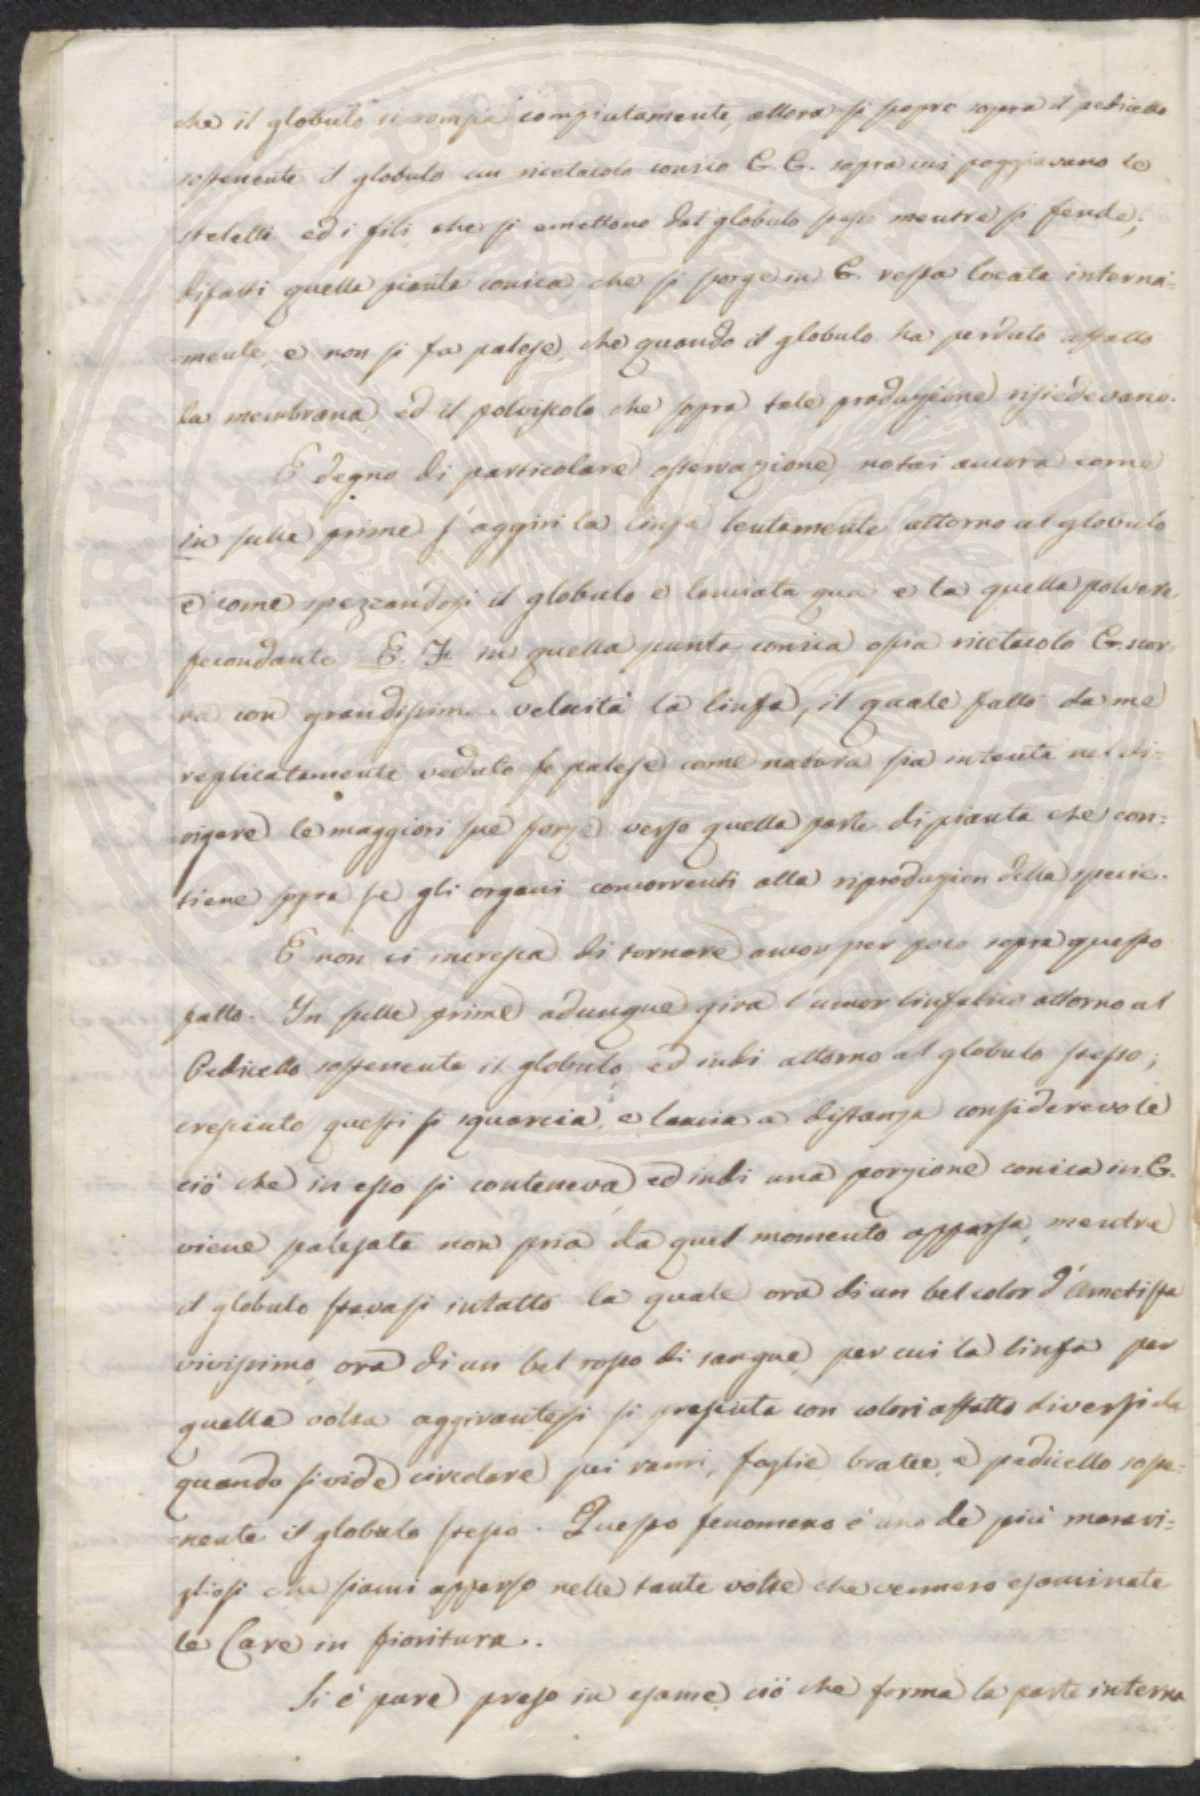 che il globulo si rompa compiutamente, allora si scopre sopra il pedicello
sostenente il globulo un ricetacolo conico G. G. sopra cui poggiavano le
steletti ed i fili che si emettono dal globulo stesso mentre si fende,
difatti quella pianta conica, che si scorge in G. resta locata interna=
=mente, e non si fa palese, che quando il globulo ha perduto affatto
la membrana, ed il polviscolo che sopra tale produzione risiedevano.
E degno di particolare osservazione, notai ancora come
in sulle prime s'aggiri la linfa lentamente attorno al globulo
e come spezzandosi il globulo e lanciata qua e la quella polvere
fecondante E. F. in quella punta conica ossia ricetacolo G. scor=
ra con grandissima velocità la linfa, il quale fatto da me
replicatamente veduto fe palese come natura sia intenta nel di=
=rigere le maggiori sue forze verso quella parte di pianta che con=
tiene sopra se gli organi concorrenti alla riproduzion della specie.
E non ci incresca di tornare ancor per poco sopra questo
fatto. In sulle prime adunque gira l'umor linfatico attorno al
Pedicello sostenente il globulo, ed indi attorno al globulo stesso;
cresciuto questi si squarcia, e lancia a distanza considerevole
ciò che in esso si conteneva, ed indi una porzione conica in G.
viene palesata non pria da quel momento apparsa, mentre
il globulo stavasi intatto la quale ora di un bel color d'Ametista
vivissimo, ora di un bel rosso di sangue, per cui la linfa per
quella volta aggirantesi si presenta con colori affatto diversi da
quando si vide circolare pei rami, foglie, bratee, e pedicello soste=
=nente il globulo stesso. Questo fenomeno è uno de più maravi=
gliosi che siami apparso nelle tante volte che vennero esaminate
le Care in fioritura.
Si è pure preso in esame ciò che forma la parte interna